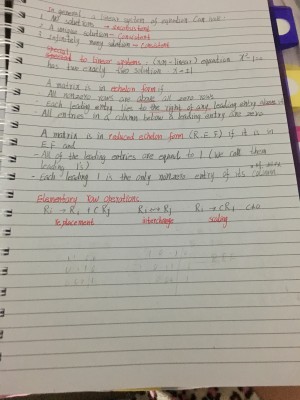 In general, a linear system of equation can have:
1. No solution → Inconsistent
2. A unique solution → Consistent
3. Infinitely many solution → Consistent
Special to linear systems: (non-linear) equation x²-1=0
has two exactly two solution: x=±1
A matrix is in echelon form if
All nonzero rows are above all zero rows
Each leading entry lies to the right of any leading entry above it
All entries in a column below a leading entry are zero
A matrix is in reduced echelon form (R.E.F) if it is in
E.F and
- All of the leading entries are equal to 1 (we call them
leading 1's)
- Each leading 1 is the only nonzero entry of its column
Elementary row operations
Ri → Ri + cRj Ri ↔ Rj Ri → cRi c≠0
replacement interchange scaling